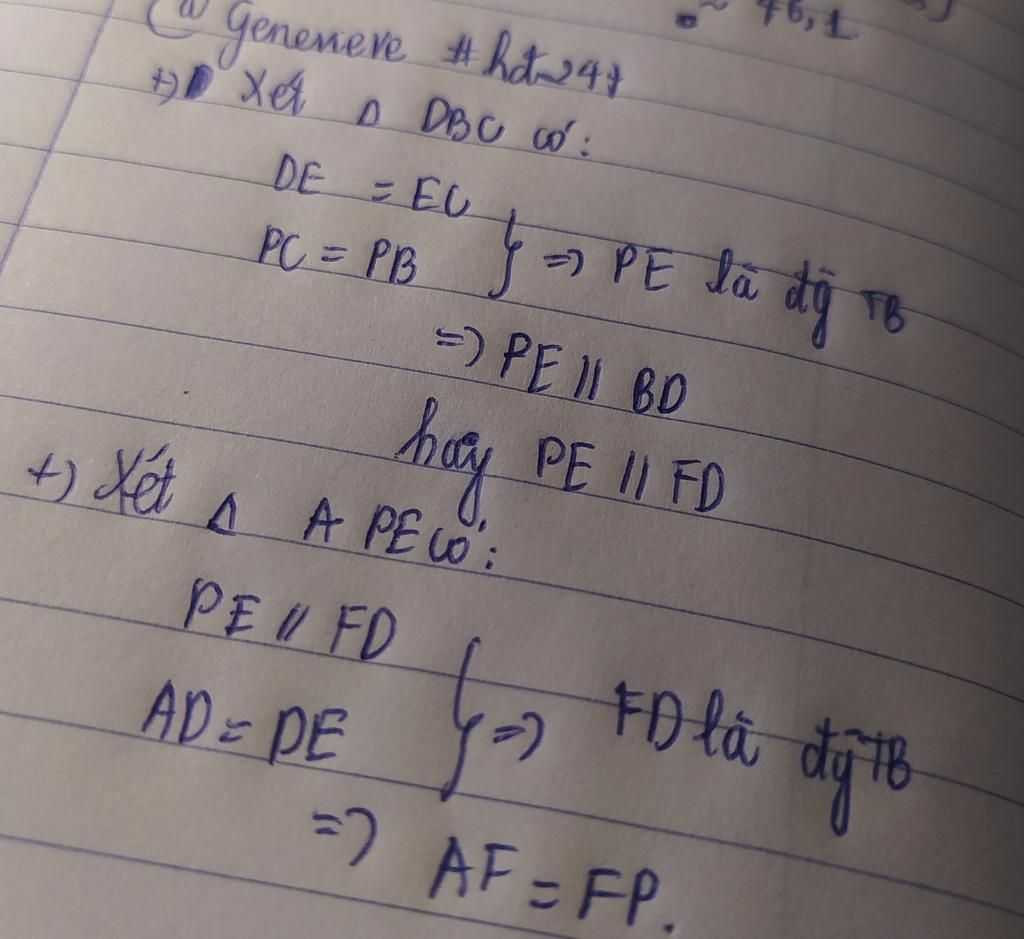 @ Genevieve #hđ~247
+) Xét Δ DBC có:
DE = EC
PC = PB } => PE là đg TB
=> PE // BD
hay PE // FD
+) Xét Δ APE có:
PE // FD
AD = DE } => FD là đg TB
=> AF = FP.